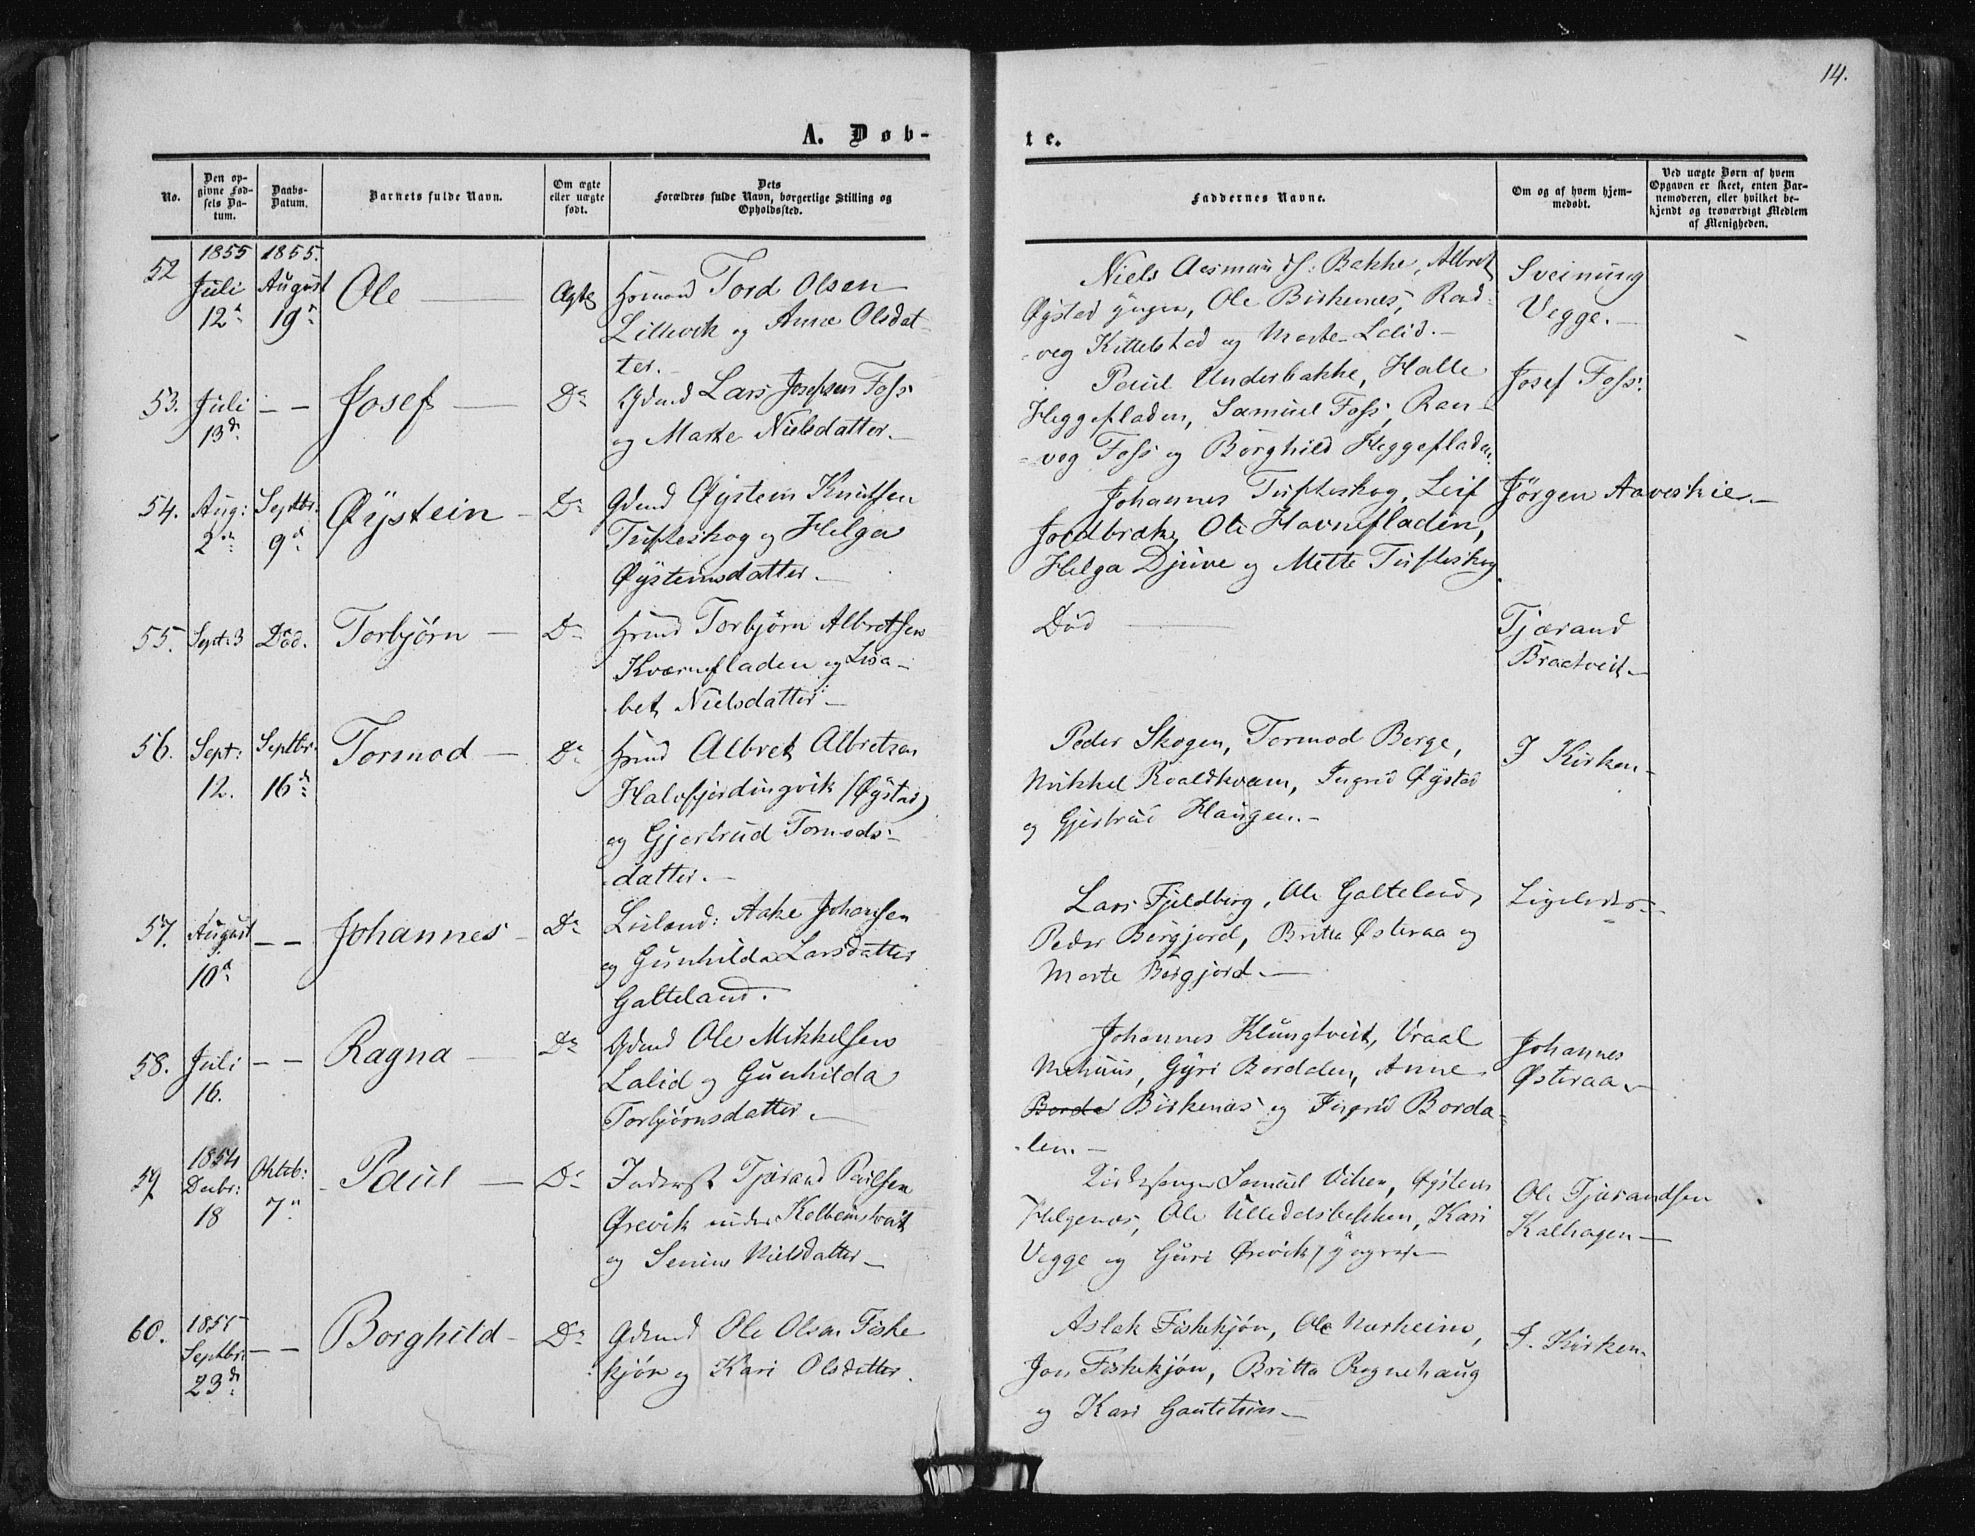 14.
A. Døb-
te.
No.
Den op-
givne Fød-
sels Da-
tum.
Daabs-
Datum.
Barnets fulde Navn.
Om ægte
eller uægte
født.
Dets
Forældres fulde Navn, borgerlige Stilling og
Opholdssted.
Faddernes Navne.
Om og af hvem hjem-
medøbt.
Ved uægte Børn af hvem
Opgaven er skeet, enten Bar-
nemoderen, eller hvilket be-
kjendt og troværdigt Medlem
af Menigheden.
52
1855
Juli
12
1855.
August
19
Ole
Ægte
Tord Olsen
Lillevik og Anne Olsdat-
ter.
Niels Aasmunds: Bakke, Albret
Øystad, Ole Birkenes, Rand-
veg Kittelstad og Marte Lalid.
Sveinung
Vegge.
53.
Juli
13
— —
Josef
Do
Gdmd Lars Josefsen Foss
og Marte Nielsdatter.
Paul Underbakke, Halle
Heggefladen, Samuel Foss, Ran-
veg Foss og Borghild Heggefladen.
Josef Foss.
54.
Aug:
2
Septbr.
9
Øystein
Do
Gdmd Øystein Knutsen
Tufteskog og Helga
Øysteinsdatter.
Johannes Tufteskog, Leif
Jordbrække, Ole Havnefladen,
Helga Djuve og Mette Tufteskog.
Jørgen Aaveskie.
55.
Sept: 3
Død.
Torbjørn
Do
Hsmd Torbjørn Albretsen
Kværnefladen og Lisa-
bet Nielsdatter
Død
Tjærand
Bratveit
56.
Sept:
12.
Septbr.
16
Tormod
Do
Hsmd Albret Albretsen
Halvfjerdingvik (Øystad)
og Gjertrud Tormods-
datter.
Peder Skogen, Tormod Berge,
Mikkel Roaldkvam, Ingrid Øystad
og Gjertrud Haugen.
I Kirken
57.
August
10
— —
Johannes
Do
Leilænd: Aake Johansen
og Gunhilda Larsdatter
Galteland.
Lars Fjeldberg, Ole Galteland,
Peder Bergjord, Britta Østeraa og
Marte Bergjord.
Ligeledes
58.
Juli
16.
— —
Ragna
Do
Gdmd Ole Mikkelsen
Lalid og Gunhilda
Torbjørnsdatter.
Johannes Klungtveit, Vraal
Mehuus, Gyri Bordalen, Anne
Borda Birkenes og Ingrid Borda-
len.
Johannes
Østeraa
59
1854
Decbr:
18
Oktob:
7
Paul
Do
Inderst Tjærand Paulsen
Ørevik under Kolbeinstveit
og Serine Nielsdatter
Kirkesanger Samuel Viken, Øystein
Helgenæs, Ole Ulladalsbakken, Kari
Vegge og Guri Ørevik
Ole Tjærandsen
Kalhagen
60.
1855
Septbr:
23
— —
Borghild
Do
Gdmd Ole Olsen Fiske
kjøn og Kari Olsdatter.
Aslak Fiskekjøn, Ole Næsheim,
Jon Fiskekjøn, Britta Rognehaug
og Kari Gautetun
I. Kirken